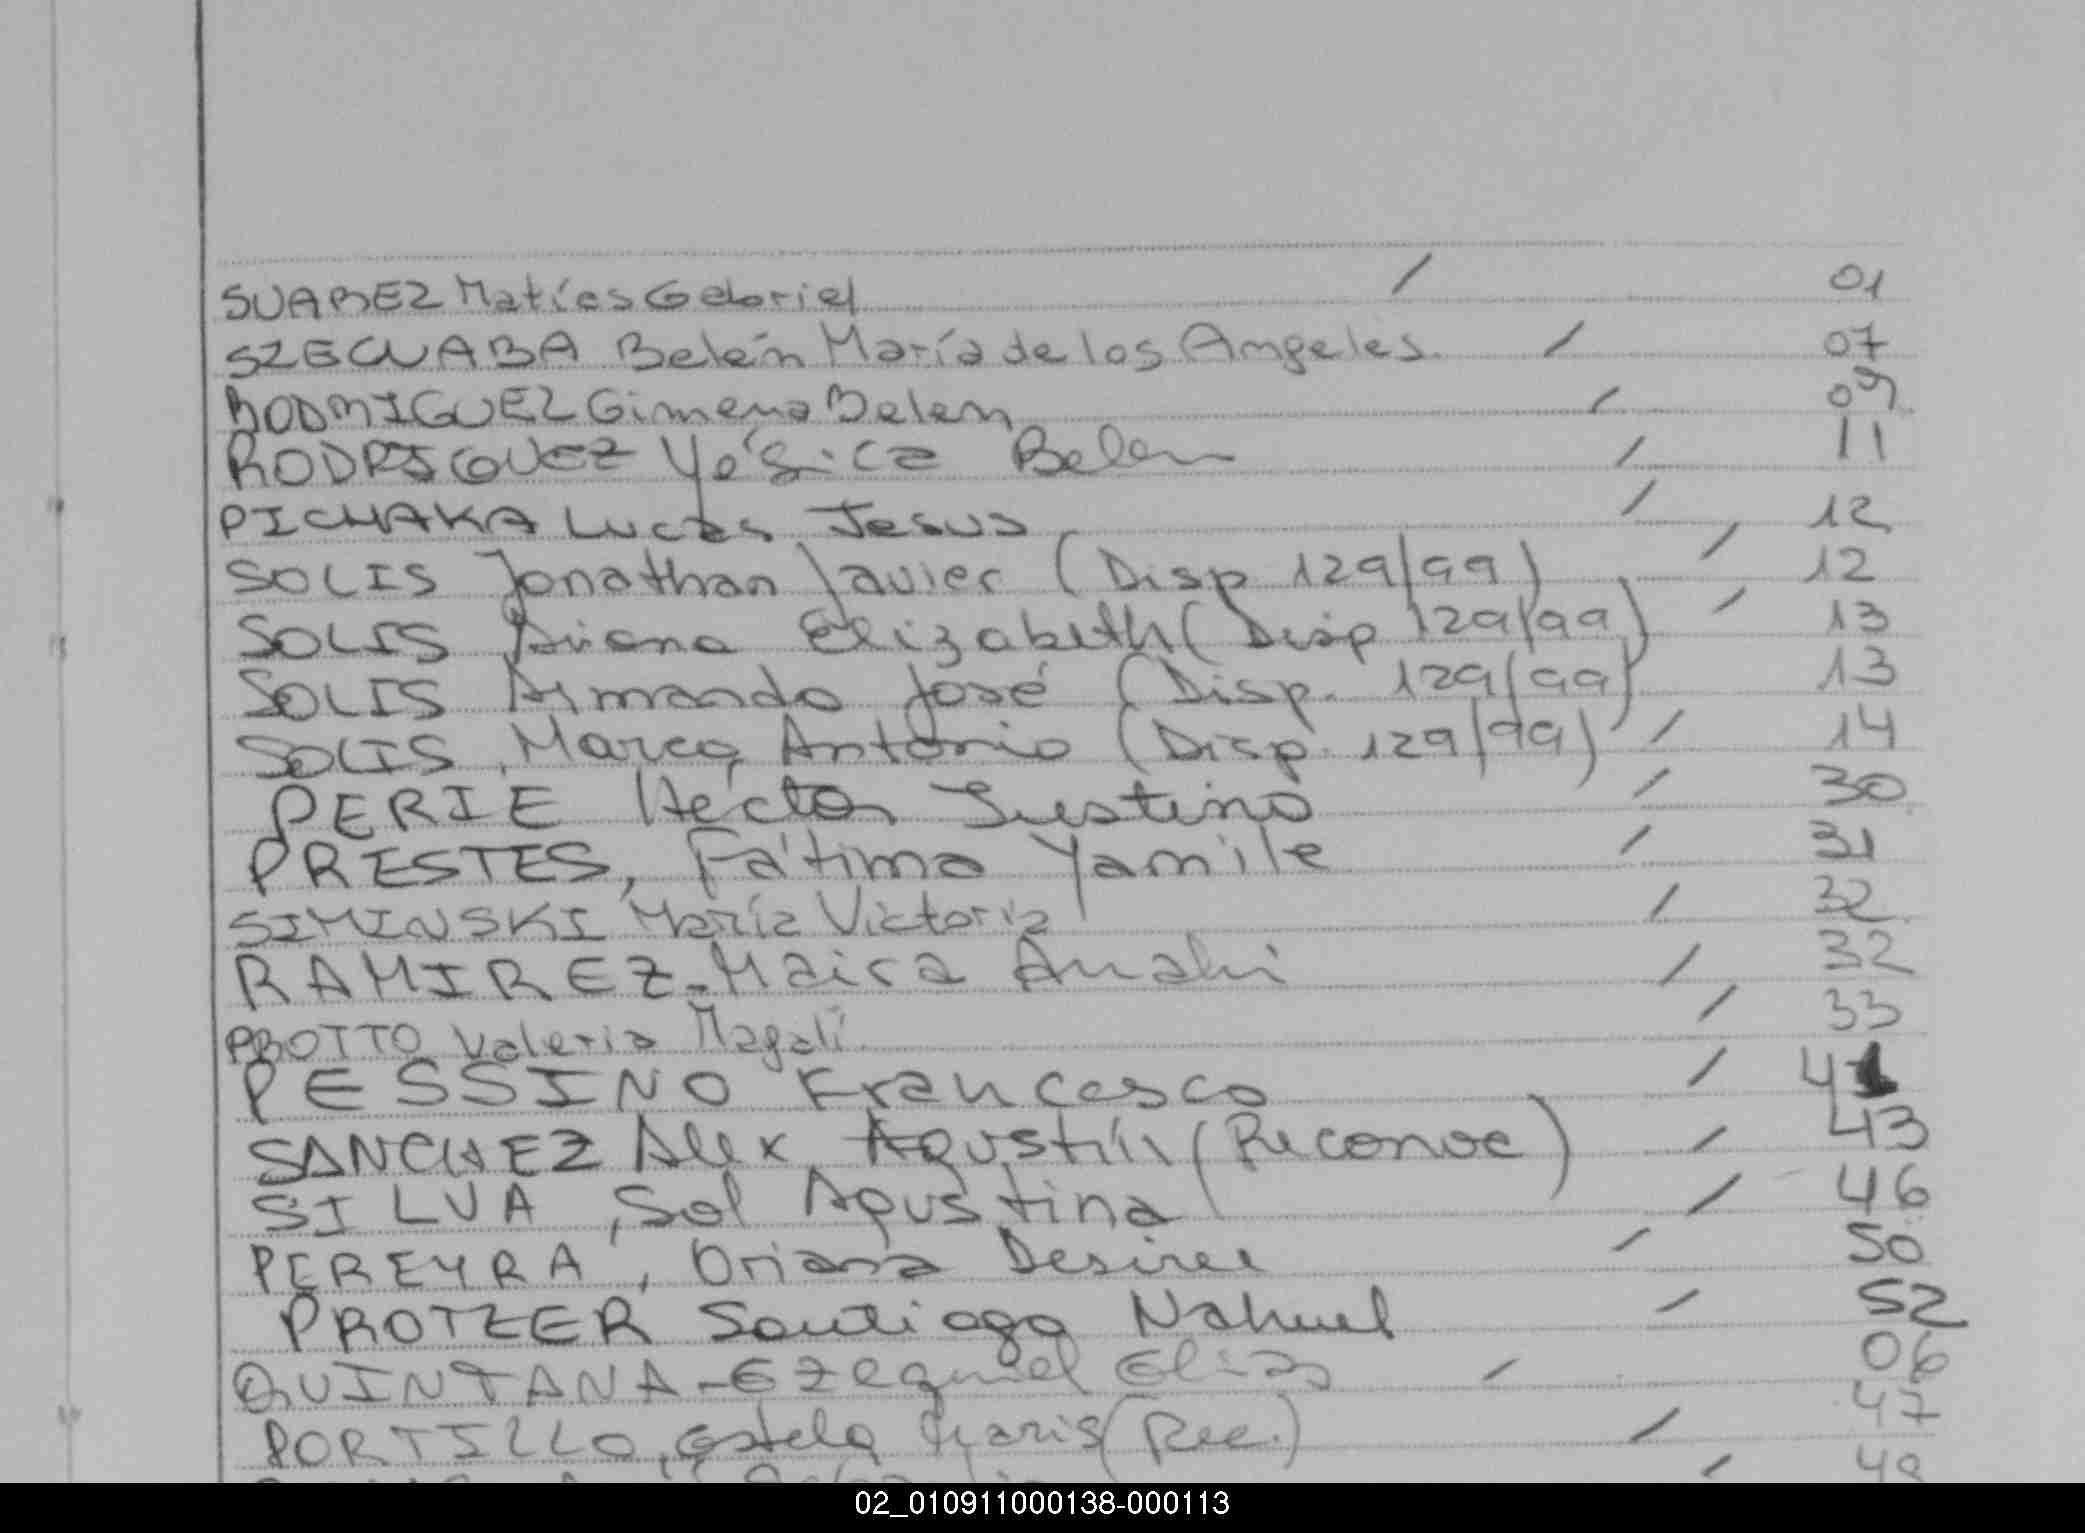 SUAREZ Matías Gabriel / 01
SZEWABA Belén María de los Angeles / 07
RODRIGUEZ Gimena Belen / 09
RODRIGUEZ Yésica Belen / 11
PICHAKA Lucas Jesus / 12
SOLIS Jonathan Javier (Disp 129/99) / 12
SOLIS Ariana Elizabeth (Disp 129/99) / 13
SOLIS Armando José (Disp. 129/99) 13
SOLIS, Marco Antonio (Disp. 129/99) / 14
PERIE Héctor Justino / 30
PRESTES, Fátima Yamile / 31
SIMINSKI María Victoria / 32
RAMIREZ - Maira Anahi / 32
PROTTO Valeria Magali / 33
PESSINO Francesco / 41
SANCHEZ Alex Agustín (Reconoc) / 43
SILVA, Sol Agustina / 46
PEREYRA, Oriana Desiree / 50
PROTZER Santiago Nahuel / 52
QUINTANA - Ezequiel Elias / 06
PORTILLO, Estela Maris (Rec.) / 47
/ 48
02_010911000138-000113